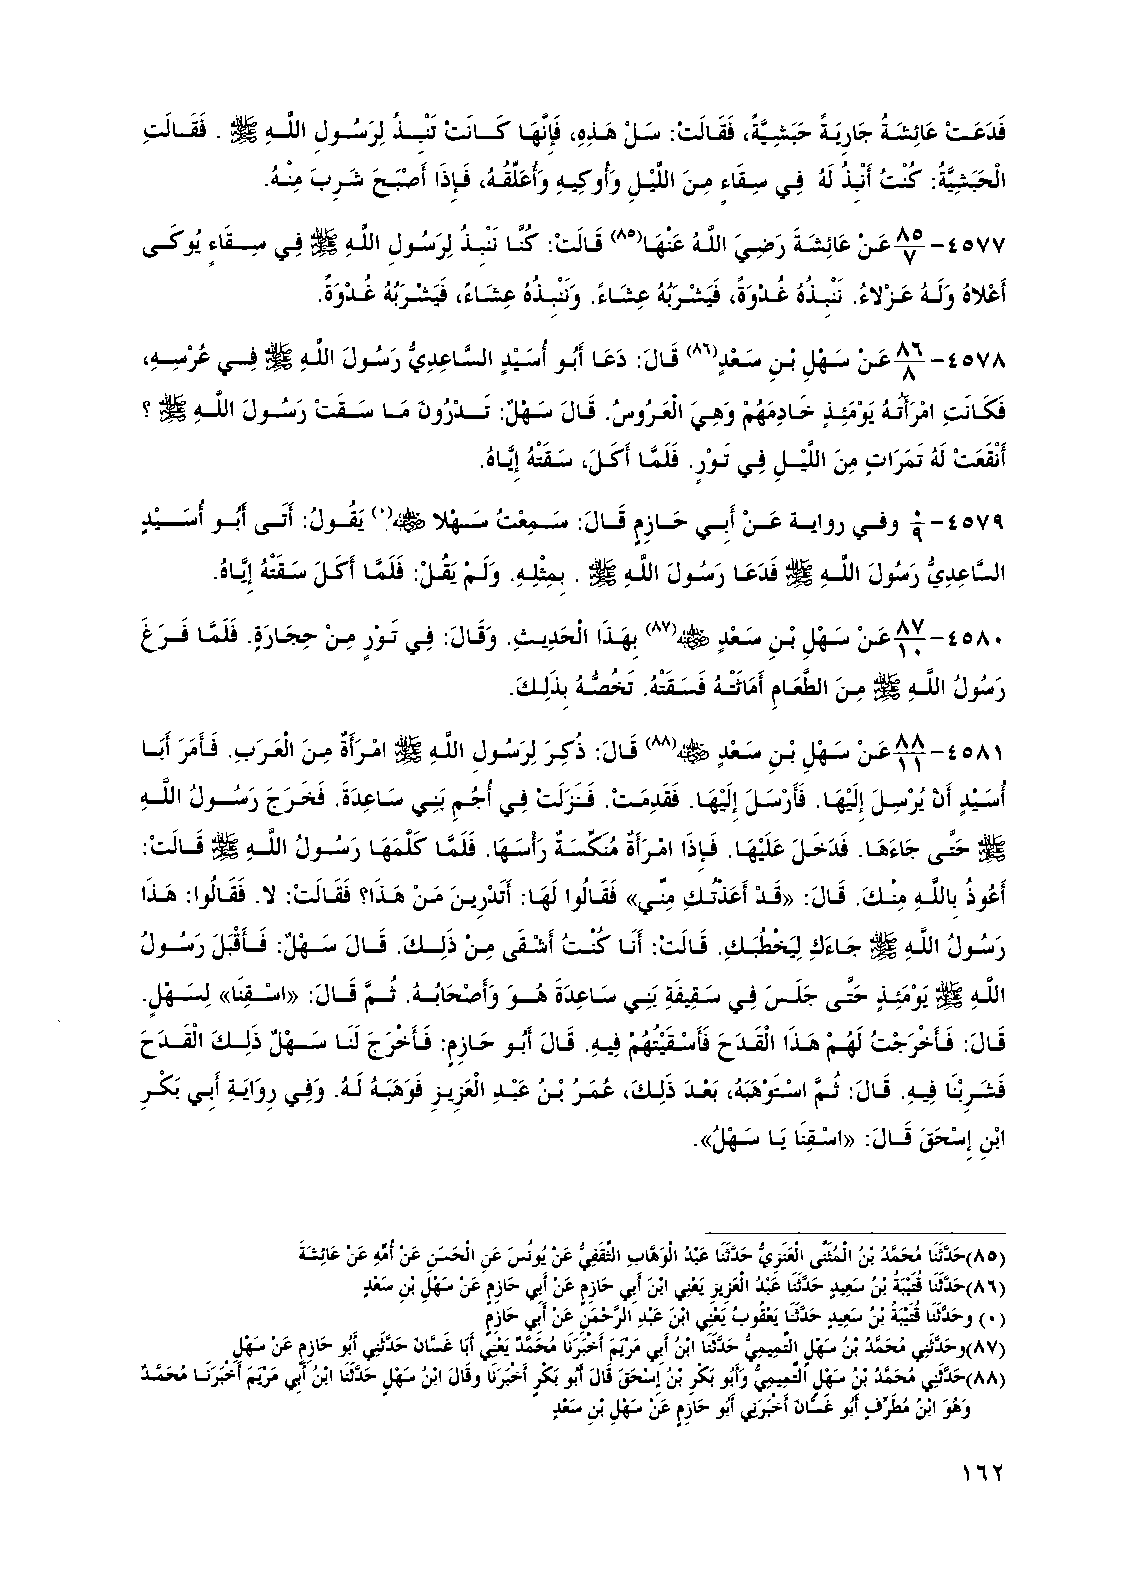 فَدَعَتْ عَائِشَةُ جَارِيَةً حَبَشِيَّةً، فَقَالَتْ: سَلْ هَذِهِ، فَإِنَّهَا كَانَتْ تَنْبِذُ لِرَسُولِ اللَّهِ ﷺ . فَقَالَتِ
الْحَبَشِيَّةُ: كُنْتُ أَنْبِذُ لَهُ فِي سِقَاءٍ مِنَ اللَّيْلِ وَأُوكِيهِ وَأُعَلِّقُهُ، فَإِذَا أَصْبَحَ شَرِبَ مِنْهُ.
٤٥٧٧- ٨٥/٧ عَنْ عَائِشَةَ رَضِيَ اللَّهُ عَنْهَا(٨٥) قَالَتْ: كُنَّا نَنْبِذُ لِرَسُولِ اللَّهِ ﷺ فِي سِقَاءٍ يُوكَى
أَعْلاهُ وَلَهُ عَزْلاءُ. نَنْبِذُهُ غُدْوَةً، فَيَشْرَبُهُ عِشَاءً. وَنَنْبِذُهُ عِشَاءً، فَيَشْرَبُهُ غُدْوَةً.
٤٥٧٨- ٨٦/٨ عَنْ سَهْلِ بْنِ سَعْدٍ(٨٦) قَالَ: دَعَا أَبُو أُسَيْدٍ السَّاعِدِيُّ رَسُولَ اللَّهِ ﷺ فِي عُرْسِهِ،
فَكَانَتِ امْرَأَتُهُ يَوْمَئِذٍ خَادِمَهُمْ وَهِيَ الْعَرُوسُ. قَالَ سَهْلٌ: تَدْرُونَ مَا سَقَتْ رَسُولَ اللَّهِ ﷺ ؟
أَنْقَعَتْ لَهُ تَمَرَاتٍ مِنَ اللَّيْلِ فِي تَوْرٍ. فَلَمَّا أَكَلَ، سَقَتْهُ إِيَّاهُ.
٤٥٧٩- ٠/٩ وفي رواية عَنْ أَبِي حَازِمٍ قَالَ: سَمِعْتُ سَهْلا ﷺ(٠) يَقُولُ: أَتَى أَبُو أُسَيْدٍ
السَّاعِدِيُّ رَسُولَ اللَّهِ ﷺ فَدَعَا رَسُولَ اللَّهِ ﷺ . بِمِثْلِهِ. وَلَمْ يَقُلْ: فَلَمَّا أَكَلَ سَقَتْهُ إِيَّاهُ.
٤٥٨٠- ٨٧/١٠ عَنْ سَهْلِ بْنِ سَعْدٍ ﷺ(٨٧) بِهَذَا الْحَدِيثِ. وَقَالَ: فِي تَوْرٍ مِنْ حِجَارَةٍ. فَلَمَّا فَرَغَ
رَسُولُ اللَّهِ ﷺ مِنَ الطَّعَامِ أَمَاثَتْهُ فَسَقَتْهُ. تَخُصُّهُ بِذَلِكَ.
٤٥٨١- ٨٨/١١ عَنْ سَهْلِ بْنِ سَعْدٍ ﷺ(٨٨) قَالَ: ذُكِرَ لِرَسُولِ اللَّهِ ﷺ امْرَأَةٌ مِنَ الْعَرَبِ. فَأَمَرَ أَبَا
أُسَيْدٍ أَنْ يُرْسِلَ إِلَيْهَا. فَأَرْسَلَ إِلَيْهَا. فَقَدِمَتْ. فَنَزَلَتْ فِي أُجُمِ بَنِي سَاعِدَةَ. فَخَرَجَ رَسُولُ اللَّهِ
ﷺ حَتَّى جَاءَهَا. فَدَخَلَ عَلَيْهَا. فَإِذَا امْرَأَةٌ مُنَكِّسَةٌ رَأْسَهَا. فَلَمَّا كَلَّمَهَا رَسُولُ اللَّهِ ﷺ قَالَتْ:
أَعُوذُ بِاللَّهِ مِنْكَ. قَالَ: «قَدْ أَعَذْتُكِ مِنِّي» فَقَالُوا لَهَا: أَتَدْرِينَ مَنْ هَذَا؟ فَقَالَتْ: لا. فَقَالُوا: هَذَا
رَسُولُ اللَّهِ ﷺ جَاءَكِ لِيَخْطُبَكِ. قَالَتْ: أَنَا كُنْتُ أَشْقَى مِنْ ذَلِكَ. قَالَ سَهْلٌ: فَأَقْبَلَ رَسُولُ
اللَّهِ ﷺ يَوْمَئِذٍ حَتَّى جَلَسَ فِي سَقِيفَةِ بَنِي سَاعِدَةَ هُوَ وَأَصْحَابُهُ. ثُمَّ قَالَ: «اسْقِنَا» لِسَهْلٍ.
قَالَ: فَأَخْرَجْتُ لَهُمْ هَذَا الْقَدَحَ فَأَسْقَيْتُهُمْ فِيهِ. قَالَ أَبُو حَازِمٍ: فَأَخْرَجَ لَنَا سَهْلٌ ذَلِكَ الْقَدَحَ
فَشَرِبْنَا فِيهِ. قَالَ: ثُمَّ اسْتَوْهَبَهُ، بَعْدَ ذَلِكَ، عُمَرُ بْنُ عَبْدِ الْعَزِيزِ فَوَهَبَهُ لَهُ. وَفِي رِوَايَةِ أَبِي بَكْرِ
ابْنِ إِسْحَقَ قَالَ: «اسْقِنَا يَا سَهْلُ».
(٨٥)حَدَّثَنَا مُحَمَّدُ بْنُ الْمُثَنَّى الْعَنَزِيُّ حَدَّثَنَا عَبْدُ الْوَهَّابِ الثَّقَفِيُّ عَنْ يُونُسَ عَنِ الْحَسَنِ عَنْ أُمِّهِ عَنْ عَائِشَةَ
(٨٦)حَدَّثَنَا قُتَيْبَةُ بْنُ سَعِيدٍ حَدَّثَنَا عَبْدُ الْعَزِيزِ يَعْنِي ابْنَ أَبِي حَازِمٍ عَنْ أَبِي حَازِمٍ عَنْ سَهْلِ بْنِ سَعْدٍ
(٠) وحَدَّثَنَا قُتَيْبَةُ بْنُ سَعِيدٍ حَدَّثَنَا يَعْقُوبُ يَعْنِي ابْنَ عَبْدِ الرَّحْمَنِ عَنْ أَبِي حَازِمٍ
(٨٧)وحَدَّثَنِي مُحَمَّدُ بْنُ سَهْلٍ التَّمِيمِيُّ حَدَّثَنَا ابْنُ أَبِي مَرْيَمَ أَخْبَرَنَا مُحَمَّدٌ يَعْنِي أَبَا غَسَّانَ حَدَّثَنِي أَبُو حَازِمٍ عَنْ سَهْلِ
(٨٨)حَدَّثَنِي مُحَمَّدُ بْنُ سَهْلٍ التَّمِيمِيُّ وَأَبُو بَكْرِ بْنُ إِسْحَقَ قَالَ أَبُو بَكْرٍ أَخْبَرَنَا وقَالَ ابْنُ سَهْلٍ حَدَّثَنَا ابْنُ أَبِي مَرْيَمَ أَخْبَرَنَا مُحَمَّدٌ
وَهُوَ ابْنُ مُطَرِّفٍ أَبُو غَسَّانَ أَخْبَرَنِي أَبُو حَازِمٍ عَنْ سَهْلِ بْنِ سَعْدٍ
١٦٢